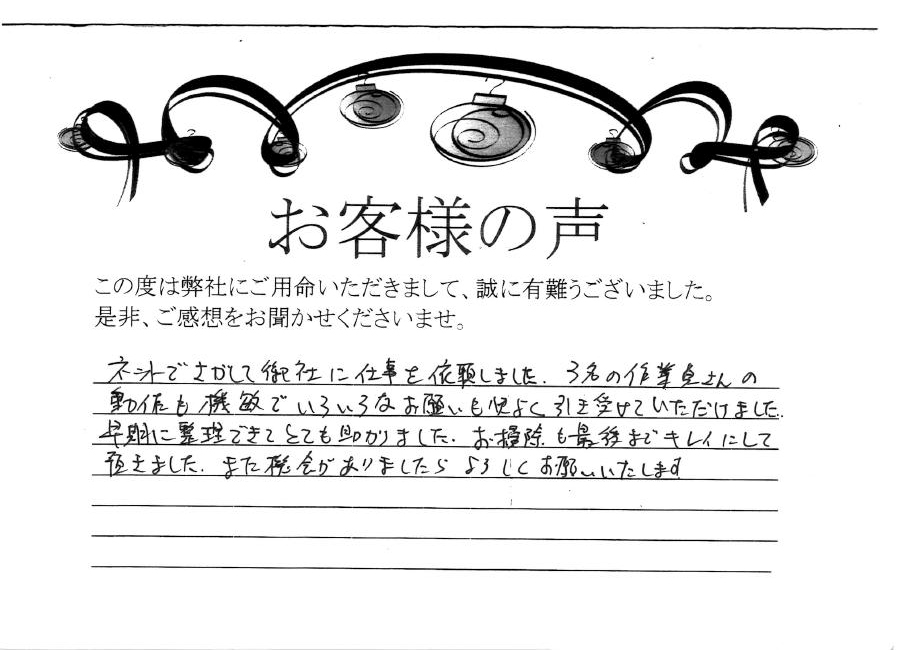 お客様の声
この度は弊社にご用命いただきまして、誠に有難うございました。
是非、ご感想をお聞かせくださいませ。
ネットでさがして御社に仕事を依頼しました。3名の作業員さんの
動作も機敏でいろいろなお願いも快よく引き受けていただけました。
早期に整理できてとても助かりました。お掃除も最後までキレイにして
頂きました。また機会がありましたらよろしくお願いいたします